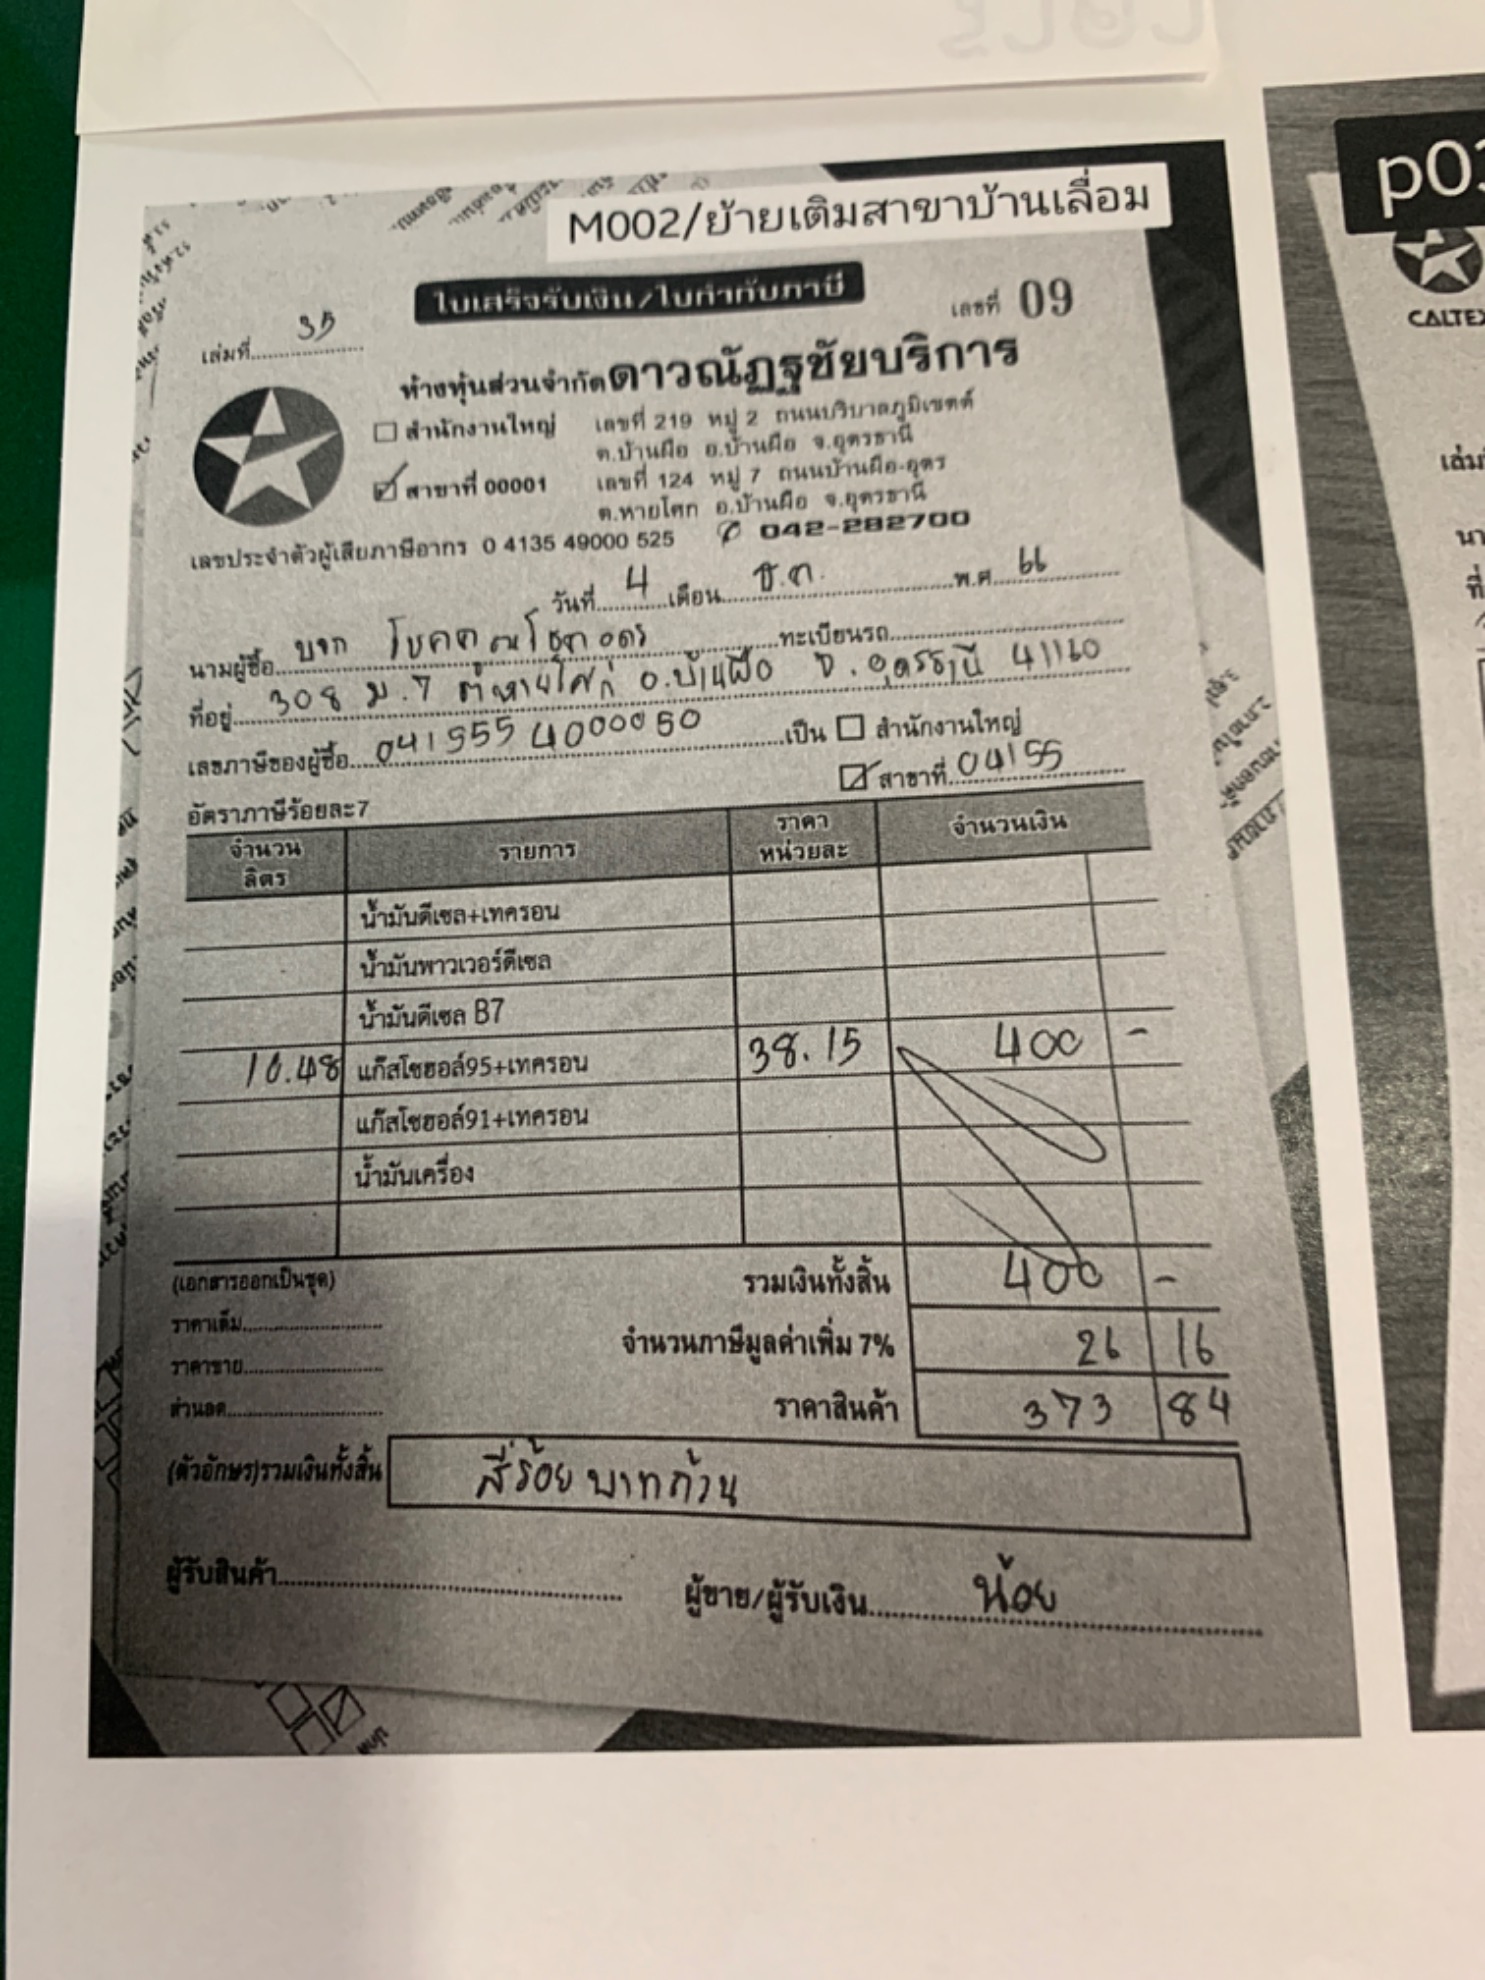 M002/ย้ายเติมสาขาบ้านเลื่อม
p03
CALTEX
ใบเสร็จรับเงิน/ใบกำกับภาษี
เล่มที่ 35
เลขที่ 09
ห้างหุ้นส่วนจำกัดดาวณัฏฐชัยบริการ
☐ สำนักงานใหญ่ เลขที่ 219 หมู่ 2 ถนนบริบาลภูมิเขตต์
ต.บ้านผือ อ.บ้านผือ จ.อุดรธานี
☑ สาขาที่ 00001 เลขที่ 124 หมู่ 7 ถนนบ้านผือ-อุดร
ต.หายโศก อ.บ้านผือ จ.อุดรธานี
เลขประจำตัวผู้เสียภาษีอากร 0 4135 49000 525 ✆ 042-282700
วันที่ 4 เดือน ธ.ค. พ.ศ. 66
นามผู้ซื้อ บจก ทะเบียนรถ
ที่อยู่ 308 ม.7 ต.หายโศก อ.บ้านผือ จ.อุดรธานี 41160
เลขภาษีของผู้ซื้อ เป็น ☐ สำนักงานใหญ่
☑ สาขาที่ 04155
อัตราภาษีร้อยละ7
จำนวนลิตร รายการ ราคาหน่วยละ จำนวนเงิน
น้ำมันดีเซล+เทครอน
น้ำมันพาวเวอร์ดีเซล
น้ำมันดีเซล B7
10.48 แก๊สโซฮอล์95+เทครอน 38.15 400 -
แก๊สโซฮอล์91+เทครอน
น้ำมันเครื่อง
(เอกสารออกเป็นชุด) รวมเงินทั้งสิ้น 400 -
ราคาเต็ม
จำนวนภาษีมูลค่าเพิ่ม 7% 26 16
ราคาขาย
ส่วนลด ราคาสินค้า 373 84
(ตัวอักษร)รวมเงินทั้งสิ้น สี่ร้อยบาทถ้วน
ผู้รับสินค้า ผู้ขาย/ผู้รับเงิน น้อย